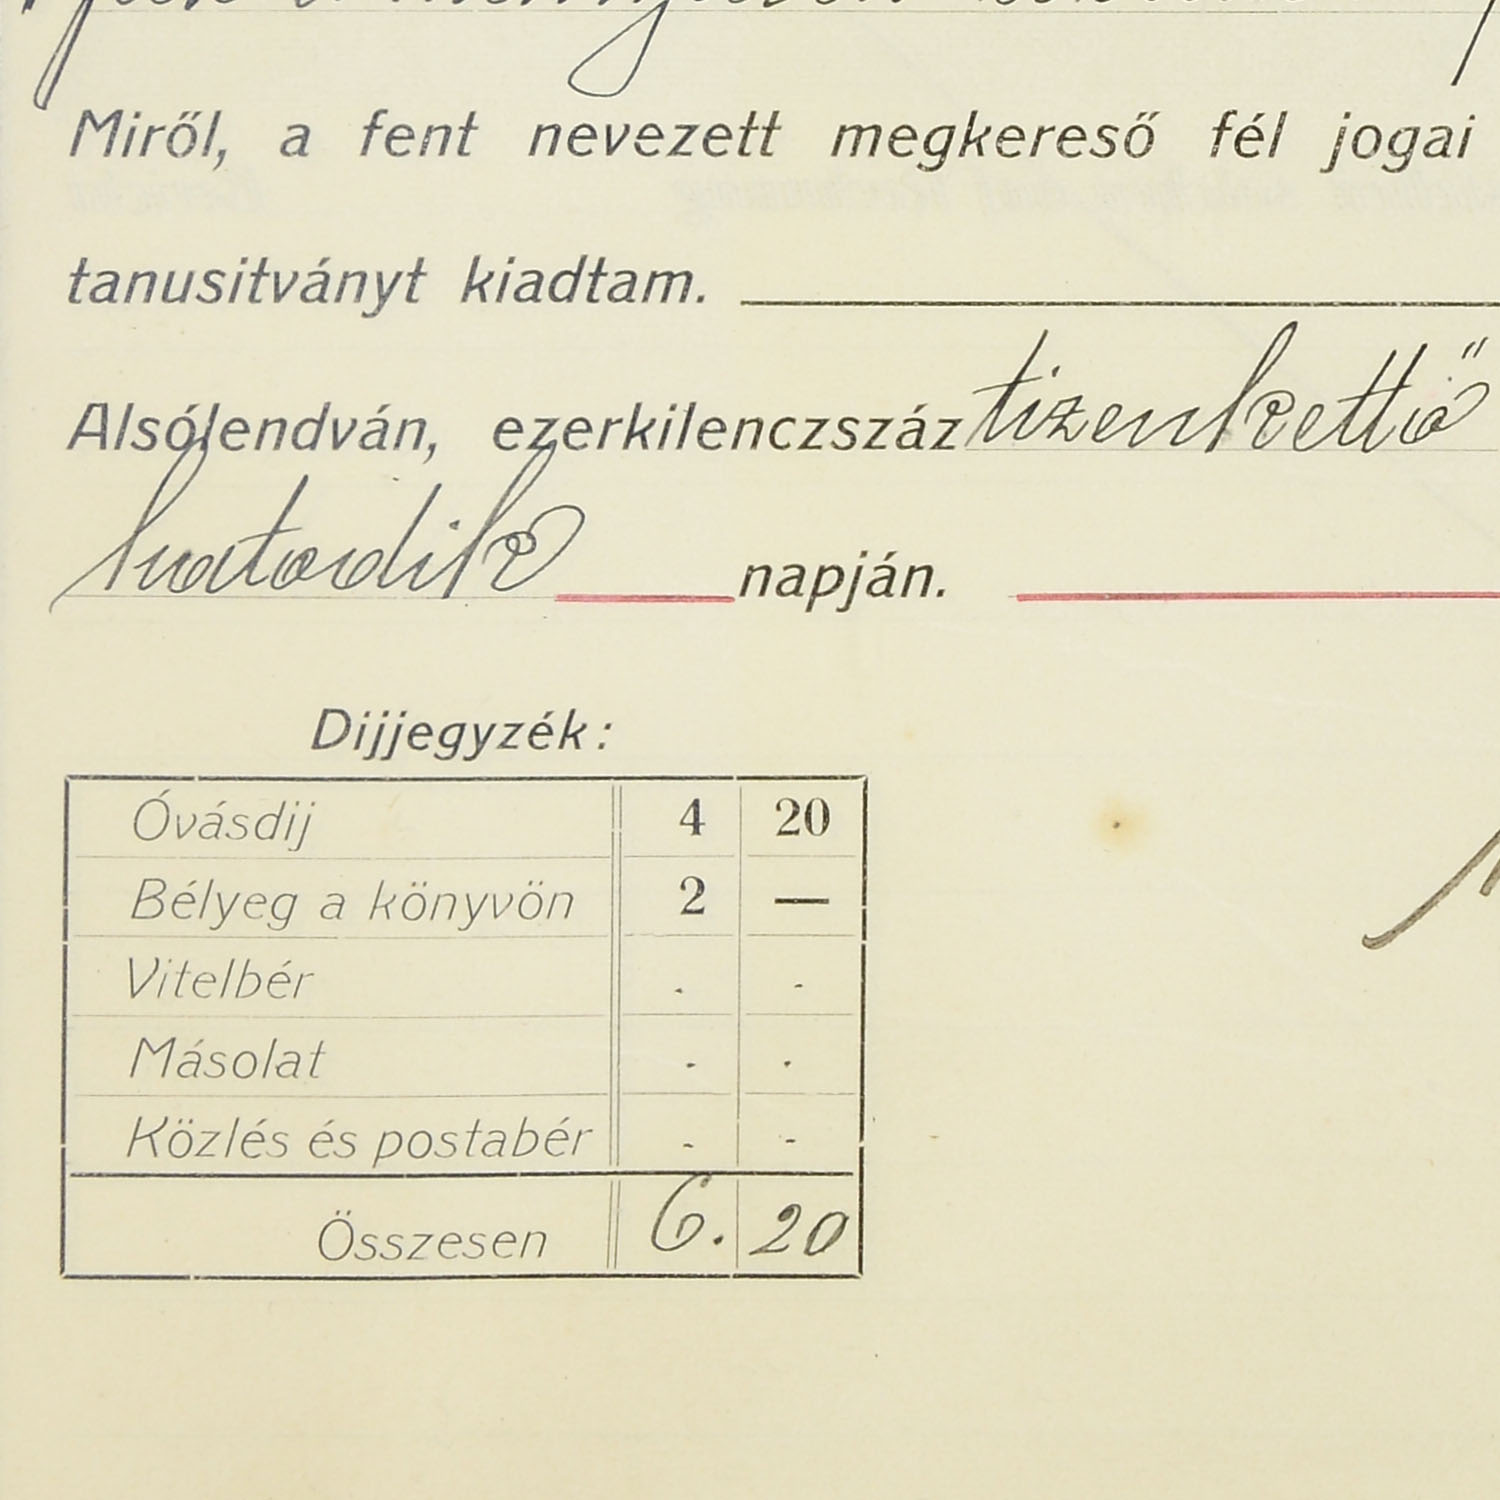 Miről, a fent nevezett megkereső fél jogai
tanusitványt kiadtam.
Alsólendván, ezerkilenczszáz tizenkettő
hatodik napján.
Dijjegyzék:
Óvásdij 4 20
Bélyeg a könyvön 2 —
Vitelbér . -
Másolat - .
Közlés és postabér - -
Összesen 6. 20